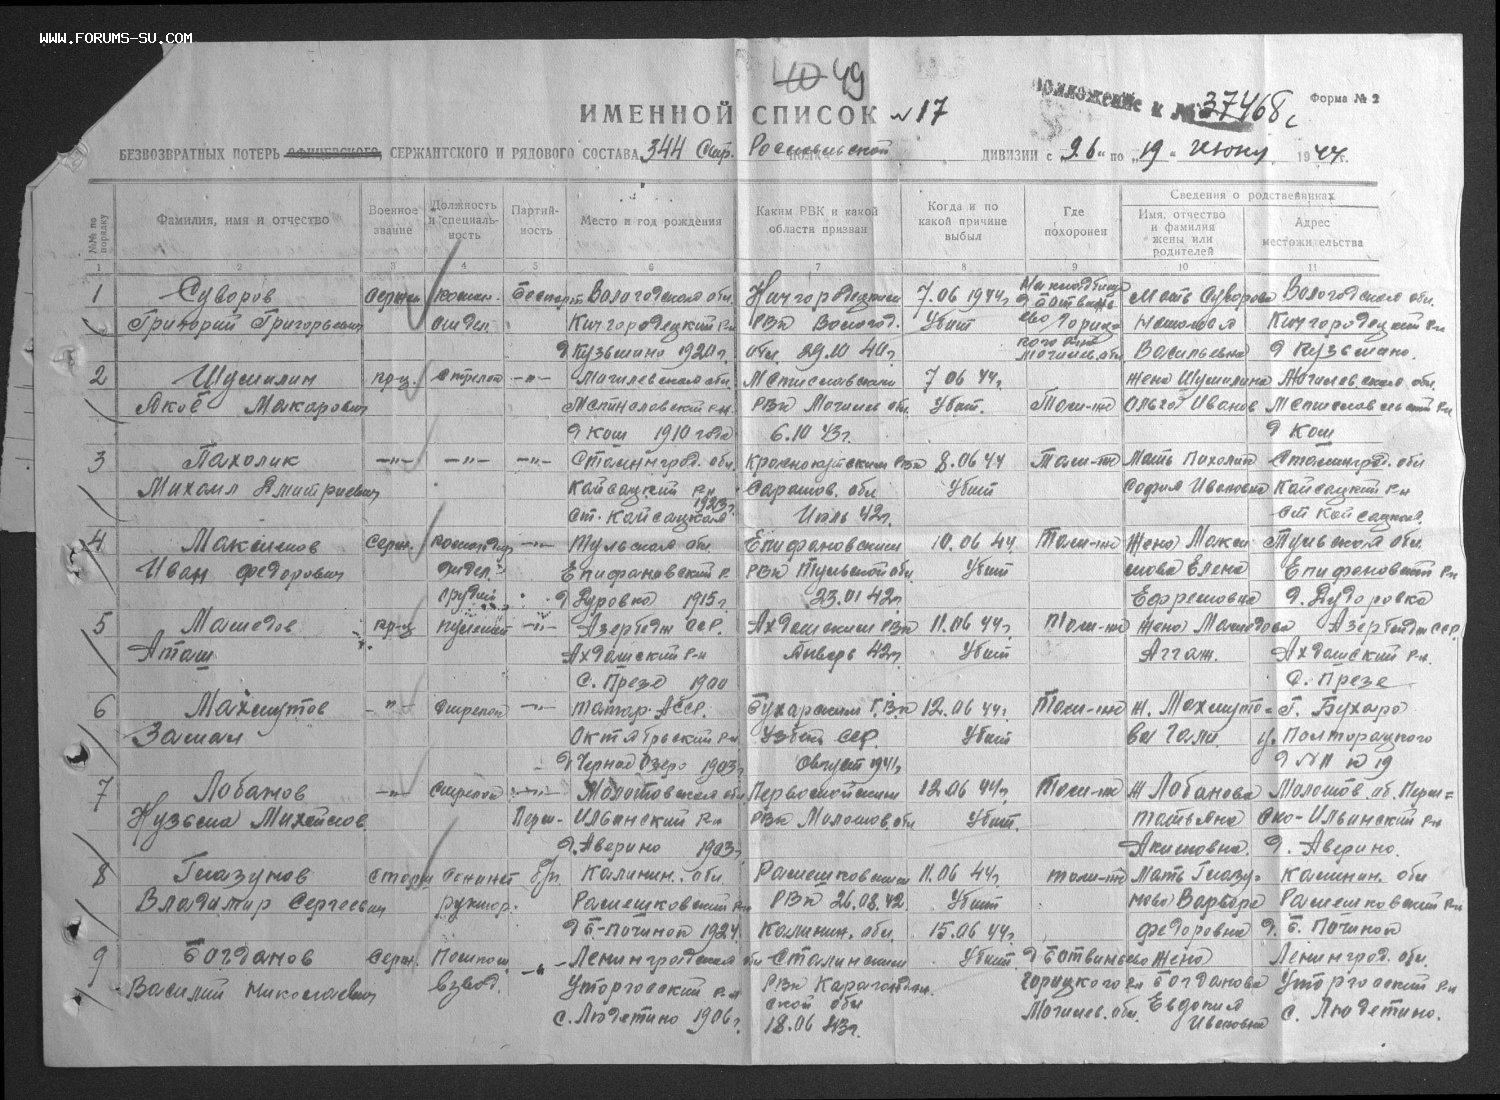 WWW.FORUMS-SU.COM
49
ИМЕННОЙ СПИСОК №17
Приложение к № 37468с
Форма № 2
БЕЗВОЗВРАТНЫХ ПОТЕРЬ ОФИЦЕРСКОГО, СЕРЖАНТСКОГО И РЯДОВОГО СОСТАВА 344 Стр. Рославльской ДИВИЗИИ с „ по „19“ июня 1944 г.
№№ по порядку
Фамилия, имя и отчество
Военное звание
Должность и специальность
Партийность
Место и год рождения
Каким РВК и какой области призван
Когда и по какой причине выбыл
Где похоронен
Сведения о родственниках
Имя, отчество и фамилия жены или родителей
Адрес местожительства
1 2 3 4 5 6 7 8 9 10 11
1 Суворов Сержан. коман. Беспарт Вологодская обл. 7.06 1944г Мать Суворова Вологодская обл.
Григорий Григорьевич отдел. Кичгородецкий Р-н РВК Вологод. Убит Кичгородецкий Р-н
д Кузьмино 1920г. обл 29.10 40г Могилев. обл Васильевна д Кузьмино.
2 Шумилин кр-ц. стрелок —"— Могилевская обл. Мстиславским 7 06 44г. Жена Шумилина Могилевская обл.
Яков Макарович РВК Могилев обл. Убит. Там-же Ольга Иванов
д Кош 1910 года 6.10 43г. д Кош
3 Пахолик —"— —"— —"— Сталинград. обл. Краснокутским РВК 8.06 44 Там-же Мать Пахолик Сталинград. обл
Михаил Дмитриевич Кайсацкий Р-н Саратов. обл Убит София Ивановна Кайсацкий Р-н
ст. Кайсацкая 1923г. Июль 42г. ст Кайсацкая.
4 Максимов Серж. командир —"— Тульская обл. Епифановским 10.06 44. Там-же Жена Макси Тульская обл.
Иван Федорович отдел. Епифановский Р. РВК Тульской обл Убит мова Елена Епифановский Р-н
1915г 23.01 42г. Ефремовна д. Дудоровка
5 Мамедов кр-ц —"— Азербдж ССР. Ахдашским РВК 11.06 44г. Там-же Жена Мамедова Азербдж ССР.
Аташ Ахдашский Р-н Январь 42г. Убит Аггаж. Ахдашский Р-н.
с. Презе 1900 с. Презе
6 Махмутов —"— Стрелок —"— Татар. АССР. Бухарским Г.В.К 12.06 44г. Там-же Ж. Махмуто- Г. Бухара
Заман Октябрьский Р-н Узбек ССР. Убит ва Гали. у. Полторацкого
д Черное Озеро 1903г Август 1941г 19
7 Лобанов —"— Стрелок Молотовская обл 12.06 44г. Там-же Ж Лобанова Молотов. об. Перм=
Кузьма Михайлов. Перм- Ильинский Р-н РВК Молотов. обл Убит. Татьяна ско-Ильинский Р-н
д. Аверино 1903г Акимовна. д. Аверино.
8 Глазунов б/п Калинин. обл. Рамешковским 11.06 44г. Там-же Мать Глазу- Калинин. обл
Владимир Сергеевич Рамешковский Р-н РВК 26.08.42. Убит нова Варвара Рамешковский Р-н
д Б-Починок 1924. Калинин. обл. 15.06 44г. Федоровна д. Б. Починок
9 Богданов Серж. Помком. Ленинградская обл Сталинским Убит. д Ботвиньево Жена Ленинград. обл.
Василий Николаевич взвод. Уторгоский Р-н РВК Карагандин. Горицкого Р-н Богданова Уторгоский Р-н
с. Людетино 1906г. ской обл Могилев. обл. Евдокия с. Людетино.
18.06 43г. Ивановна